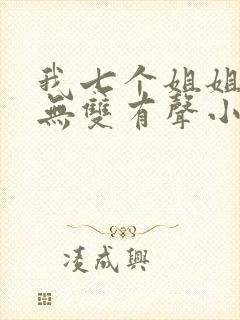 我七个姐姐
無雙有聲小
凌成興